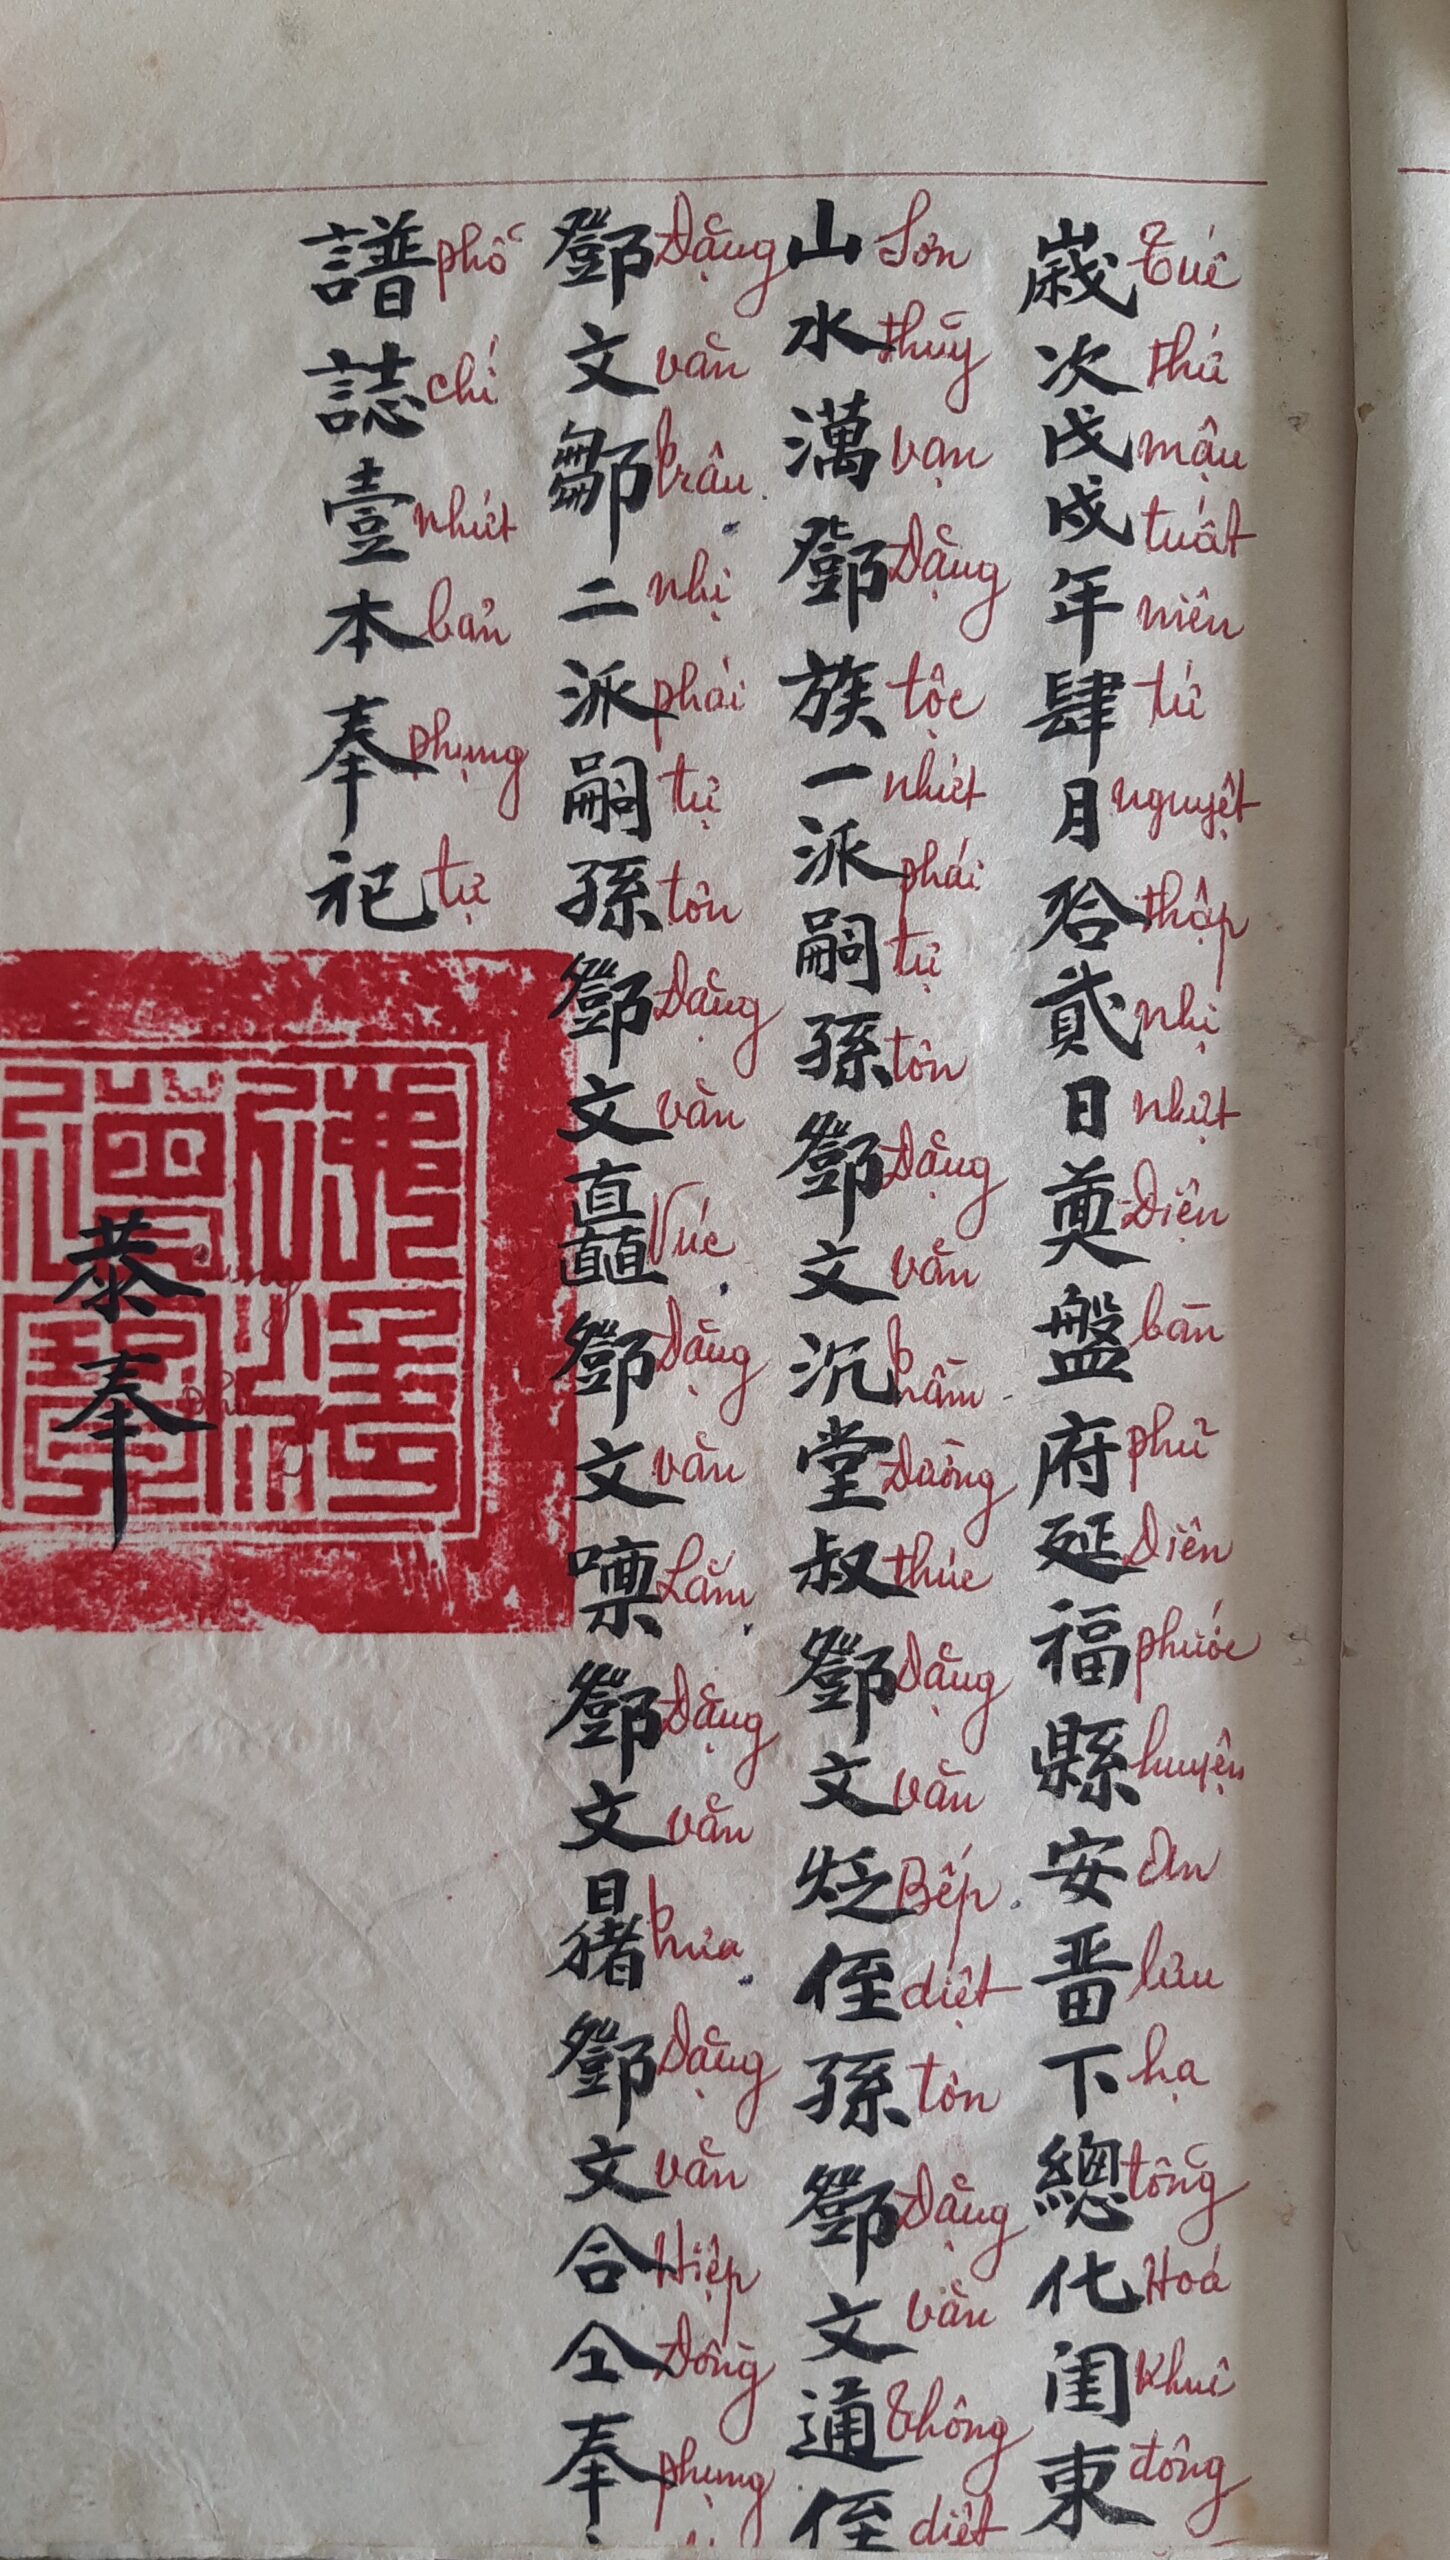 歲次戊戌年肆月拾貳日奠盤府延福縣安畱下總化閨東
Tuế thứ mậu tuất niên tứ nguyệt thập nhị nhựt Điện bàn phủ Diên phước huyện an lưu hạ tổng Hoá Khuê đông
山水澫鄧族一派嗣孫鄧文沉堂叔鄧文𤇮侄孫鄧文通侄
Sơn thủy vạn Đặng tộc nhứt phái tự tôn Đặng văn trầm Đường thúc Đặng văn Bếp diệt tôn Đặng văn Thông diệt
鄧文鄒二派嗣孫鄧文矗鄧文㖼鄧文鄧文合仝奉
Đặng văn trâu nhị phái tự tôn Đặng văn Vúc Đặng văn Lẫm Đặng văn trưa Đặng văn Hiệp Đồng phụng
譜誌壹本奉祀
phổ chí nhứt bản phụng tự
恭奉